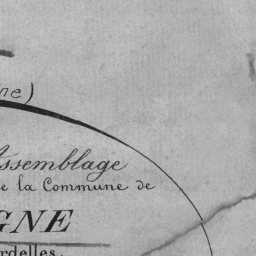 ne)
Assemblage
e la Commune de
GNE
rdelles.